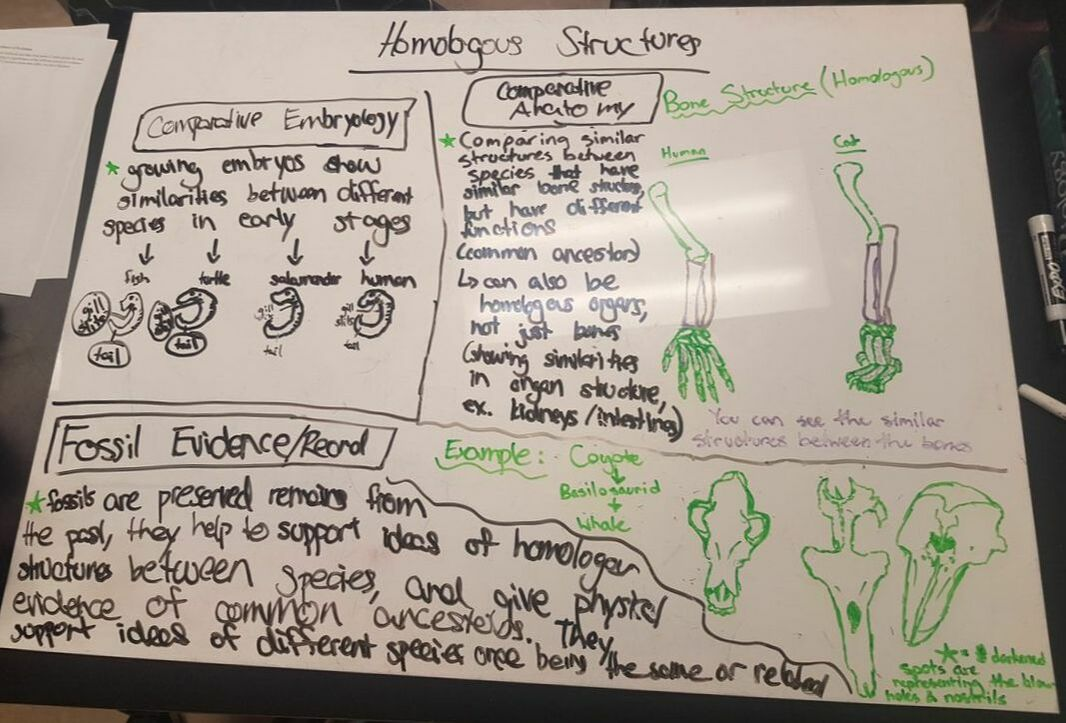 Homologous Structures
Comparative Embryology
* growing embryos show
similarities between different
species in early stages
fish turtle salamander human
gill slits
tail
gill slits
tail
gill slits
tail
gill slits
tail
Comparative
Anatomy
* Comparing similar
structures between
species that have
similar bone structure,
but have different
functions
(common ancestor)
↳ can also be
homologous organs,
not just bones
(showing similarities
in organ stucture,
ex. kidneys/intestines)
Bone Structure (Homologous)
Human
Cat
You can see the similar
structures between the bones
Fossil Evidence/Record
* fossils are preserved remains from
the past, they help to support ideas of homologous
structures between species, and give physical
evidence of common ancesteids. They
support ideas of different species once being the same or related
Example: Coyote
↓
Basilosaurid
↓
Whale
* = darkened
spots are
representing the blow
holes & nostrils
EXPO